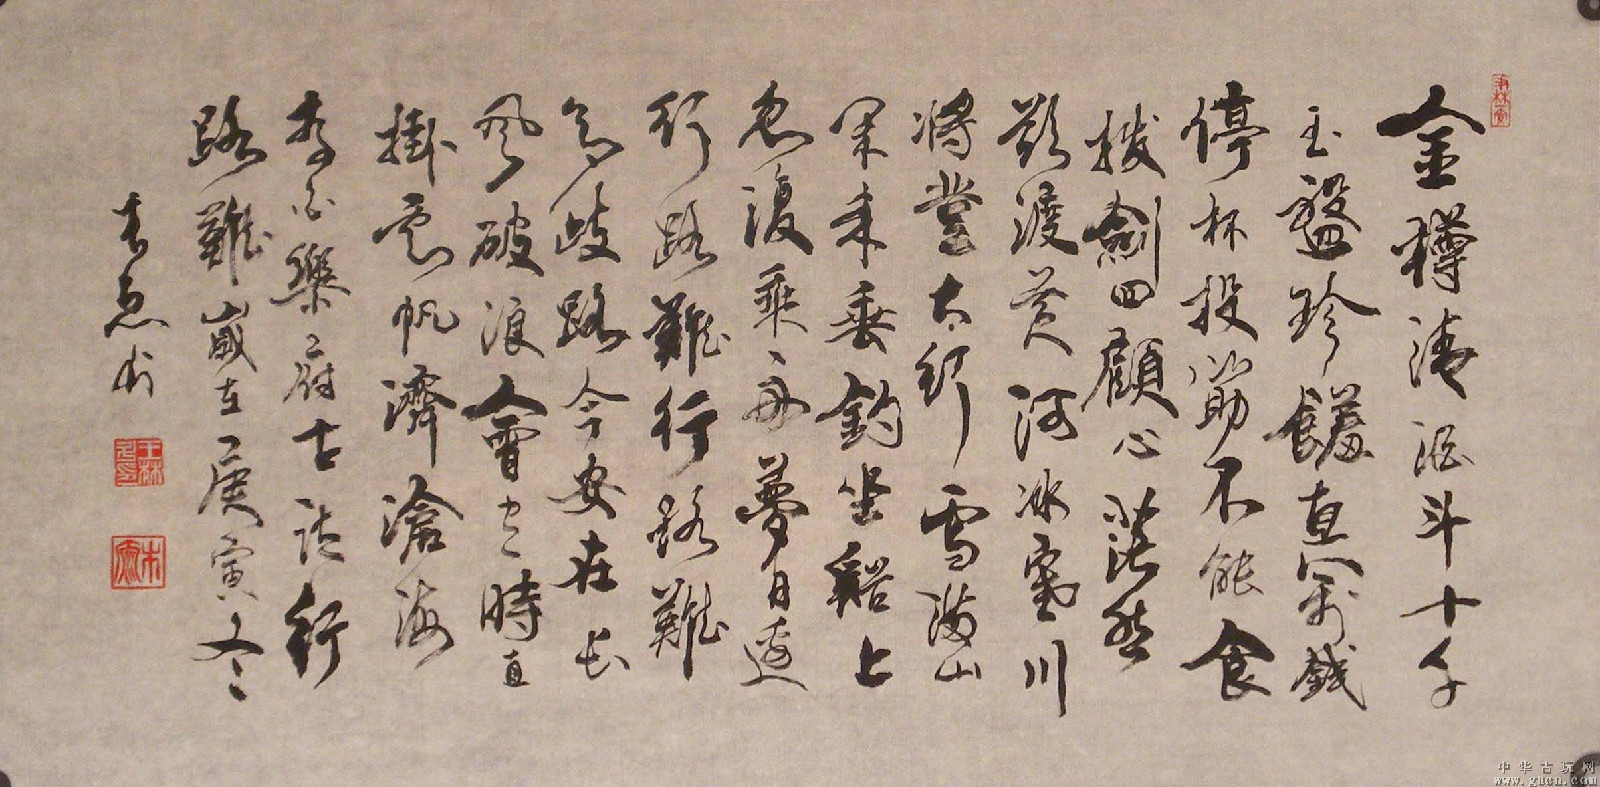 金樽清酒斗十千
玉盤珍饈直萬錢
停杯投筯不能食
拔劍四顧心茫然
欲渡黃河冰塞川
將登太行雪滿山
閑来垂釣坐谿上
忽復乘舟夢日邊
行路難行路難
多歧路今安在長
風破浪會有時直
掛雲帆濟滄海
李白樂府古詩行
路難歲在庚寅冬
中华古玩网
www.gucn.com